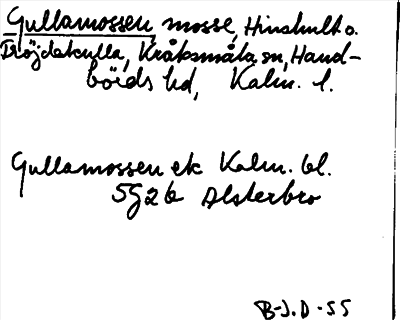 Gullamossen mosse, Hinshult o.
Tröjdakulla, Kråksmåla sn, Hand-
börds hd, Kalm. l.
Gullamossen ek Kalm. bl.
5G2b Alsterbro
B-J.D-55